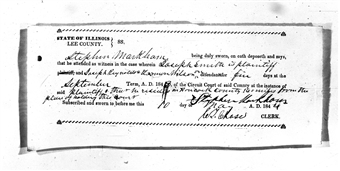 STATE OF ILLINOIS } SS.
LEE COUNTY.
Stephen Markham being duly sworn, on oath deposeth and says,
that he attended as witness in the case wherein Joseph Smith is plaintiff
and Joseph Reynolds & Harmon Wilson Defendants for five days at the
September Term, A. D. 184 of the Circuit Court of said County at the instance of
said plaintiff & that he resides in Hancock county miles from the
place of holding this court
Subscribed and sworn to before me this Stephen Markham
day of May A. D. 184
CLERK.